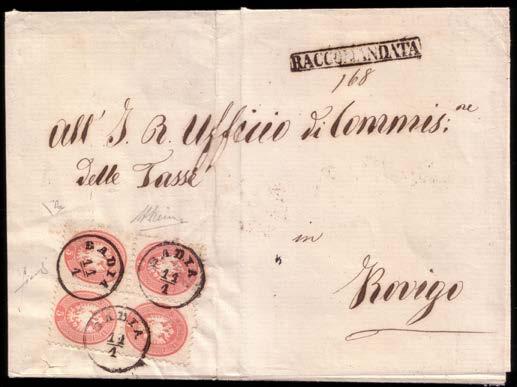 RACCOMANDATA
168
All' I. R. Ufficio di Commis:ne
delle Tasse
in
Rovigo
BADIA
11
1
BADIA
11
1
BADIA
11
1
5
5